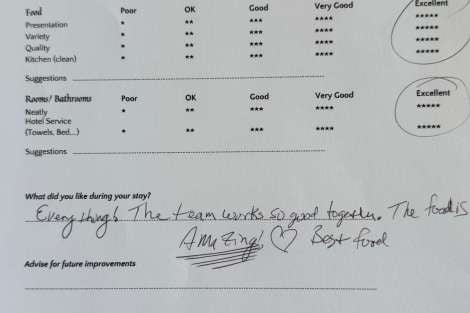 Food Poor OK Good Very Good Excellent
Presentation * ** *** **** *****
Variety * ** *** **** *****
Quality * ** *** **** *****
Kitchen (clean) * ** *** **** *****
Suggestions
Rooms/ Bathrooms Poor OK Good Very Good Excellent
Neatly * ** *** **** *****
Hotel Service
(Towels, Bed...) * ** *** **** *****
Suggestions
What did you like during your stay?
Everything! The team works so good together. The food is
Amazing! ♡ Best food
Advise for future improvements